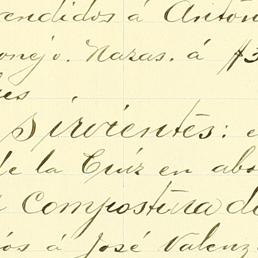 endidos á Antón
onejo. Nazas. á $3
es
Sirvientes: e
de la Cruz en abo
Compostura de
os á José Valenz